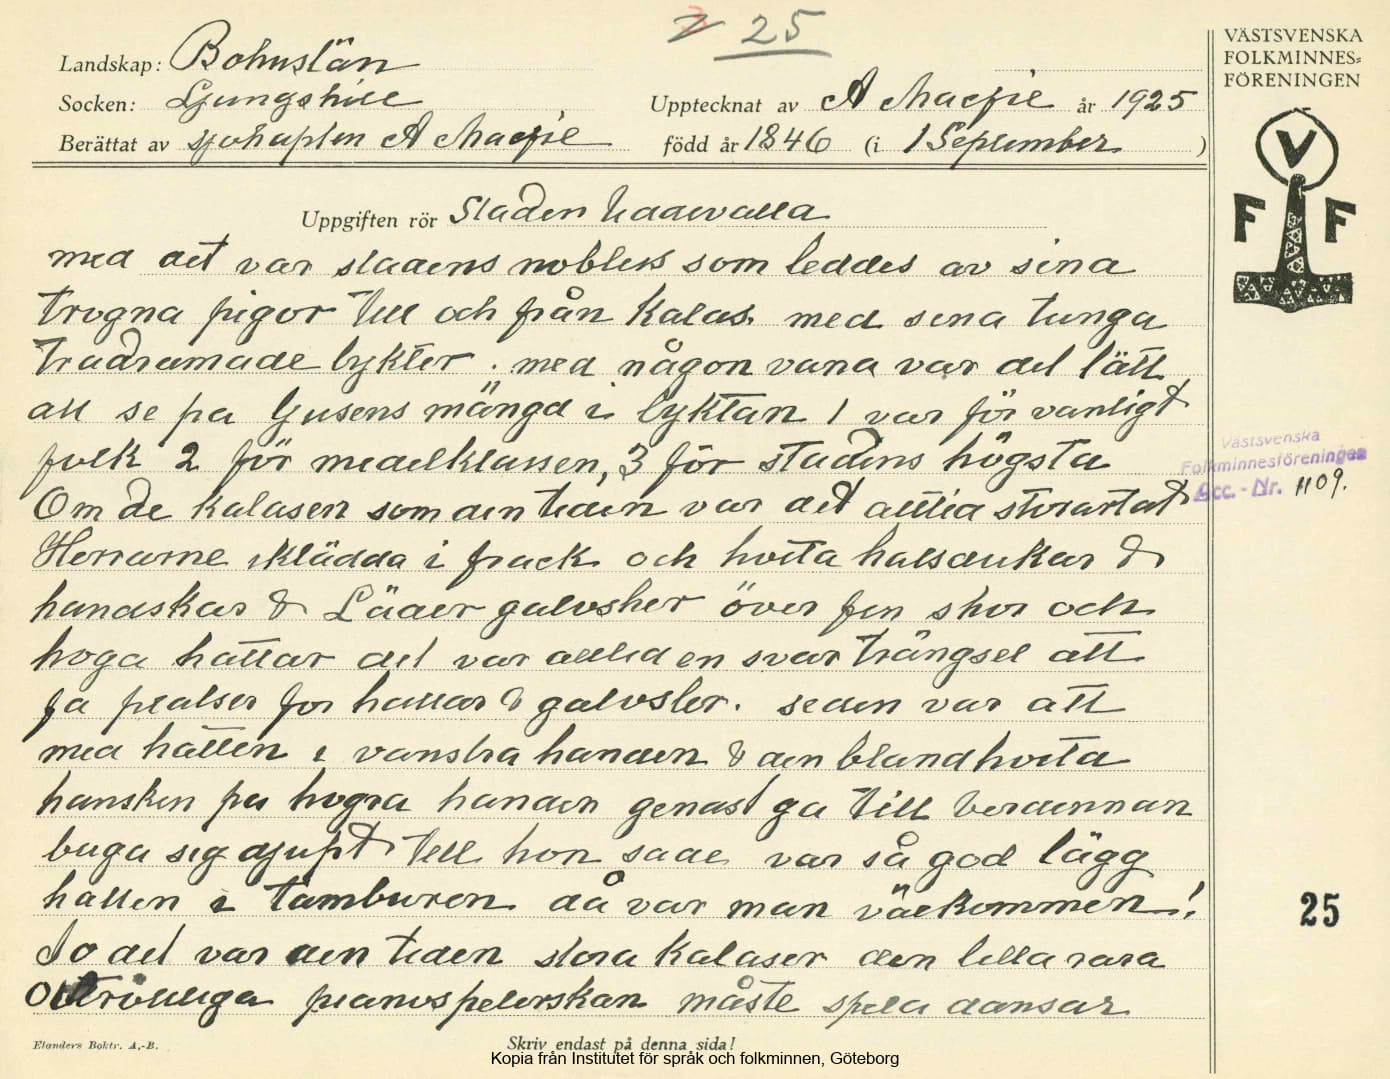 25
VÄSTSVENSKA
FOLKMINNES=
FÖRENINGEN
Landskap: Bohuslän
Socken: Ljungskile
Upptecknat av A Macfie år 1925
Berättat av sjökapten A Macfie född år 1846 (i 1 September )
V
F F
Uppgiften rör Staden Uddevalla
med det var stadens nobless som leddes av sina
trogna pigor till och från Kalas. med sina tunga
tradramade lykter. med någon vana var det lätt
att se pa ljusens mängd i lyktan 1 var för vanligt
folk 2 för medelklassen, 3 för stadens högsta
Om de kalasen som den tiden var det alltid storartat
Herrarne iklädda i frack och hvita halsdukar &
handskar & Läder galosher över fin skor och
hoga hattar det var alltid en svar trängsel att
fa platser for hattar & galosher. sedan var att
med hatten i vanstra handen & den blandhvita
hansken pa hogra handen genast ga till Verdinnan
buga sig djupt till hon sade var så god lägg
hatten i tamburen då var man välkommen!
Jo det var den tiden stora Kalaser den lilla rara
otröttliga pianospelerskan måste spela dansar
Västsvenska
Folkminnesföreningen
Acc.-Nr. 1109.
25
Elanders Boktr. A.-B.
Skriv endast på denna sida!
Kopia från Institutet för språk och folkminnen, Göteborg